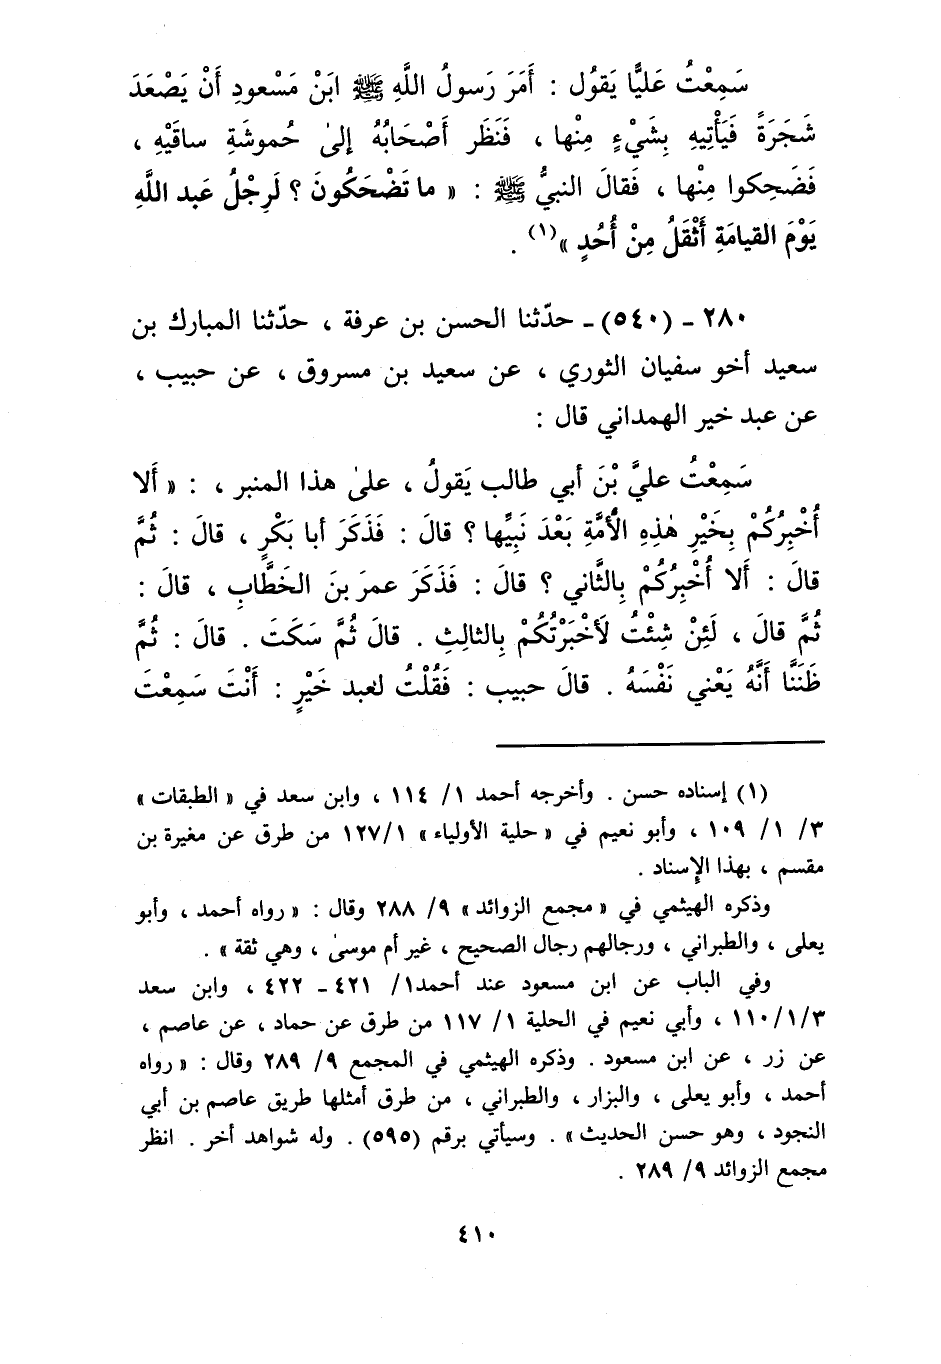 سَمِعْتُ عَلِيًّا يَقُول : أَمَرَ رَسولُ اللَّهِ ﷺ ابَنْ مَسْعودِ أَنْ يَصْعَدَ
شَجَرَةً فَيَأْتِيهِ بِشَيْءٍ مِنْها ، فَنَظَر أَصْحَابُهُ إلىٰ حُموشَةِ ساقَيْهِ ،
فَضَحِكوا مِنْها ، فَقالَ النبيُّ ﷺ : « ما تَضْحَكُونَ ؟ لَرِجْلُ عَبد اللَّهِ
يَوْمَ القيامَةِ أَثْقَلُ مِنْ أُحُدٍ »(١) .
٢٨٠ - (٥٤٠) - حدّثنا الحسن بن عرفة ، حدّثنا المبارك بن
سعيد أخو سفيان الثوري ، عن سعيد بن مسروق ، عن حبيب ،
عن عبد خير الهمداني قال :
سَمِعْتُ عليَّ بْنَ أبي طالب يَقولُ ، علىٰ هذا المنبر ، : « أَلا
أُخْبِرُكُمْ بِخَيْرِ هٰذِهِ الأُمَّةِ بَعْدَ نَبِيِّها ؟ قالَ : فَذَكَرَ أبا بَكْرٍ ، قال : ثُمَّ
قالَ : أَلا أُخْبِرُكُمْ بِالثَّاني ؟ قالَ : فَذَكَرَ عمرَ بنَ الخَطَّابِ ، قالَ :
ثُمَّ قالَ ، لَئِنْ شِئْتُ لأَخْبَرْتُكُمْ بِالثالِثِ . قالَ ثُمَّ سَكَتَ . قالَ : ثُمَّ
ظَنَنَّا أَنَّهُ يَعْني نَفْسَهُ . قالَ حبيب : فَقُلْتُ لعبد خَيْرٍ : أَنْتَ سَمِعْتَ
(١) إسناده حسن . وأخرجه أحمد ١/ ١١٤ ، وابن سعد في « الطبقات »
٣/ ١/ ١٠٩ ، وأبو نعيم في « حلية الأولياء » ١/‏١٢٧ من طرق عن مغيرة بن
مقسم ، بهذا الإسناد .
وذكره الهيثمي في « مجمع الزوائد » ٩/ ٢٨٨ وقال : « رواه أحمد ، وأبو
يعلى ، والطبراني ، ورجالهم رجال الصحيح ، غير أم موسىٰ ، وهي ثقة » .
وفي الباب عن ابن مسعود عند أحمد١/ ٤٢١ - ٤٢٢ ، وابن سعد
٣/‏١/‏١١٠ ، وأبي نعيم في الحلية ١/ ١١٧ من طرق عن حماد ، عن عاصم ،
عن زر ، عن ابن مسعود . وذكره الهيثمي في المجمع ٩/ ٢٨٩ وقال : « رواه
أحمد ، وأبو يعلى ، والبزار ، والطبراني ، من طرق أمثلها طريق عاصم بن أبي
النجود ، وهو حسن الحديث » . وسيأتي برقم (٥٩٥) . وله شواهد أخر . انظر
مجمع الزوائد ٩/ ٢٨٩ .
٤١٠